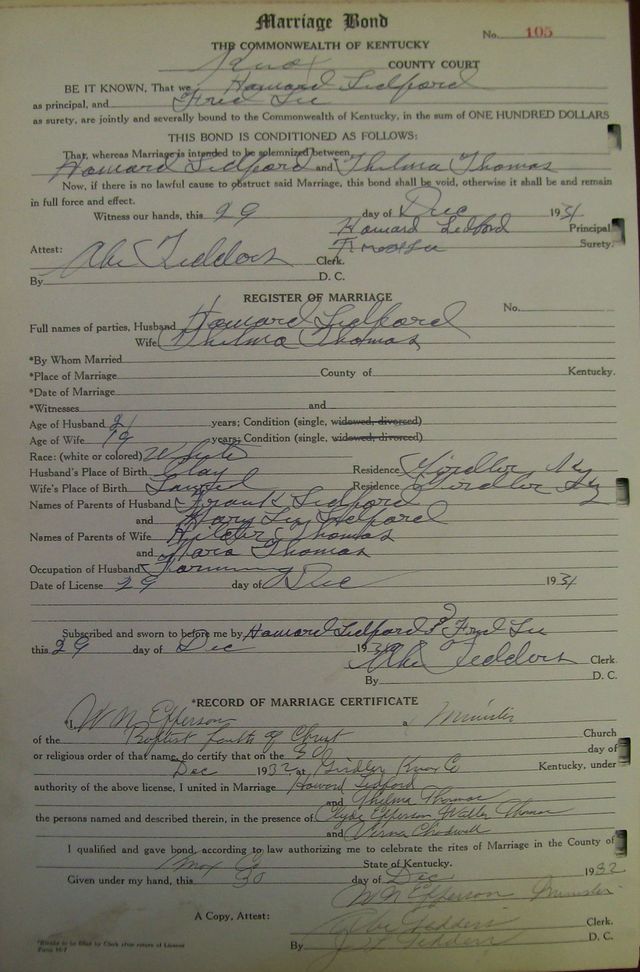 Marriage Bond
No. 105
THE COMMONWEALTH OF KENTUCKY
Knox COUNTY COURT
BE IT KNOWN, That we Howard Ledford
as principal, and Fred Lee
as surety, are jointly and severally bound to the Commonwealth of Kentucky, in the sum of ONE HUNDRED DOLLARS
THIS BOND IS CONDITIONED AS FOLLOWS:
That, whereas Marriage is intended to be solemnized between
Howard Ledford and Thelma Thomas
Now, if there is no lawful cause to obstruct said Marriage, this bond shall be void, otherwise it shall be and remain
in full force and effect.
Witness our hands, this 29 day of Dec 1931
Howard Ledford Principal
Fred Lee Surety.
Attest:
Abe Fedders Clerk.
By D. C.
REGISTER OF MARRIAGE
No.
Full names of parties, Husband Howard Ledford
Wife Thelma Thomas
*By Whom Married
*Place of Marriage County of Kentucky.
*Date of Marriage
*Witnesses and
Age of Husband 21 years; Condition (single, widowed, divorced)
Age of Wife 19 years; Condition (single, widowed, divorced)
Race: (white or colored) White
Husband's Place of Birth Clay Residence Girdler Ky
Wife's Place of Birth Laurel Residence Girdler Ky
Names of Parents of Husband Frank Ledford
and Mary Ledford
Names of Parents of Wife Thomas
and Thomas
Occupation of Husband Farming
Date of License 29 day of Dec 1931
Subscribed and sworn to before me by Howard Ledford & Fred Lee
this 29 day of Dec 193
Abe Fedders Clerk
By D. C.
*RECORD OF MARRIAGE CERTIFICATE
*I, W N Epperson a Minister
of the Baptist of Christ Church
or religious order of that name, do certify that on the 30 day of
Dec 1932 at Girdler Knox Co Kentucky, under
authority of the above license, I united in Marriage Howard Ledford
and Thelma Thomas
the persons named and described therein, in the presence of Clyde Epperson Walter Thomas
and Verna Chadwell
I qualified and gave bond, according to law authorizing me to celebrate the rites of Marriage in the County of
Knox Co State of Kentucky.
Given under my hand, this 30 day of Dec 1932
W N Epperson Minister
A Copy, Attest: Abe Fedders Clerk.
By Fedders D. C.
*Blanks to be filled by Clerk after return of License